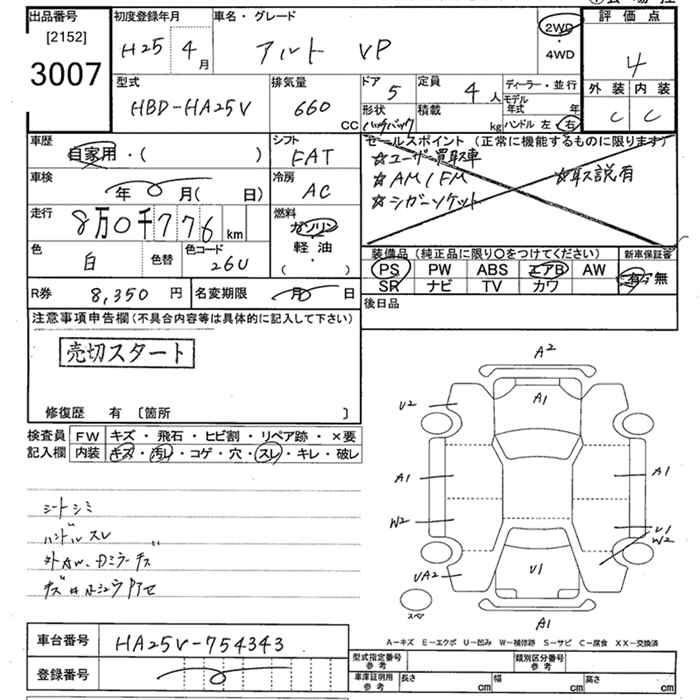 出品番号 初度登録年月 車名・グレード 評価点
[2152]
3007
H25 4月 アルト VP 2WD・4WD 4
外装 内装
C C
型式 排気量 ドア 定員 ディーラー・並行
HBD-HA25V 660CC 5 4人 モデル年式 年
形状 積載 ハンドル 左・右
ハッチバック kg
車歴 シフト セールスポイント (正常に機能するものに限ります)
自家用・( ) FAT ☆ユーザー買取車
車検 冷房 ☆AM/FM ☆取説有
年 月( 日) AC ☆シガーソケット
走行 燃料
8万0千776km ガソリン
軽油
( )
色 色替 色コード 装備品(純正品に限り○をつけてください) 新車保証書
白 26U PS PW ABS エアB AW 有・無
SR ナビ TV カワ
R券 8,350円 名変期限 月 日 後日品
注意事項申告欄(不具合内容等は具体的に記入して下さい)
売切スタート
修復歴 有 〔箇所 〕
検査員 FW キズ・飛石・ヒビ割・リペア跡・×要
記入欄 内装 キズ・汚レ・コゲ・穴・スレ・キレ・破レ
シートシミ
ハンドルスレ
A2
A1
U2
A1 A1
W2 U1
W2
UA2 U1
スペア
A1
A-キズ E-エクボ U-凹み W-補修跡 S-サビ C-腐食 XX-交換済
車台番号 HA25V-754343
登録番号
型式指定番号 参考 類別区分番号 参考
車庫証明用 参考 長さ cm 幅 cm 高さ cm